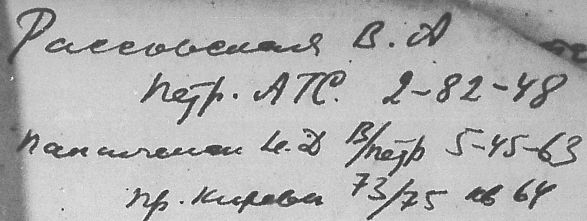 Рассовская В. А
петр. АТС. 2-82-48
И. Д В/петр 5-45-63
пр. Кирова 73/75 кв 64